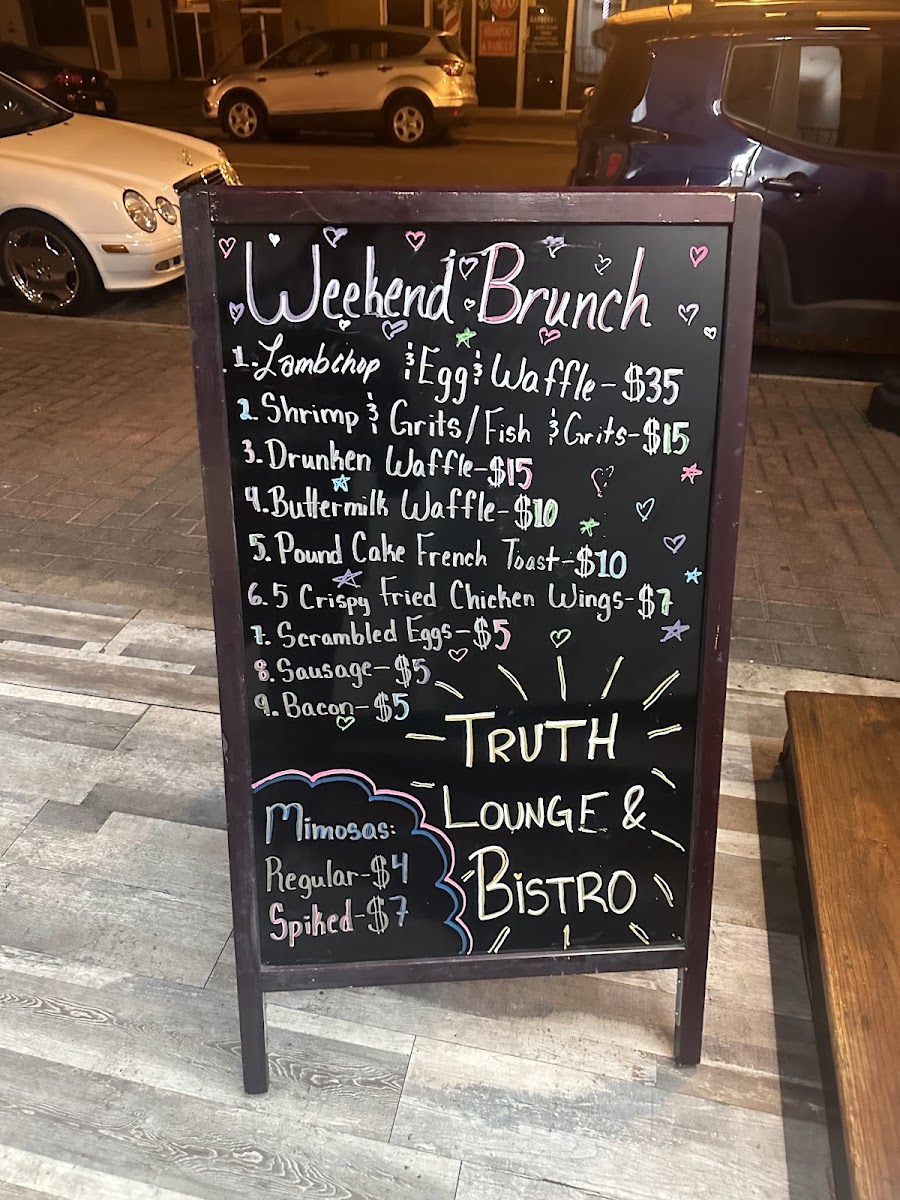 Weekend Brunch
1. Lambchop & Egg & Waffle - $35
2. Shrimp & Grits/Fish & Grits - $15
3. Drunken Waffle - $15
4. Buttermilk Waffle - $10
5. Pound Cake French Toast - $10
6. 5 Crispy Fried Chicken Wings - $7
7. Scrambled Eggs - $5
8. Sausage - $5
9. Bacon - $5
TRUTH
LOUNGE &
BISTRO
Mimosas:
Regular - $4
Spiked - $7